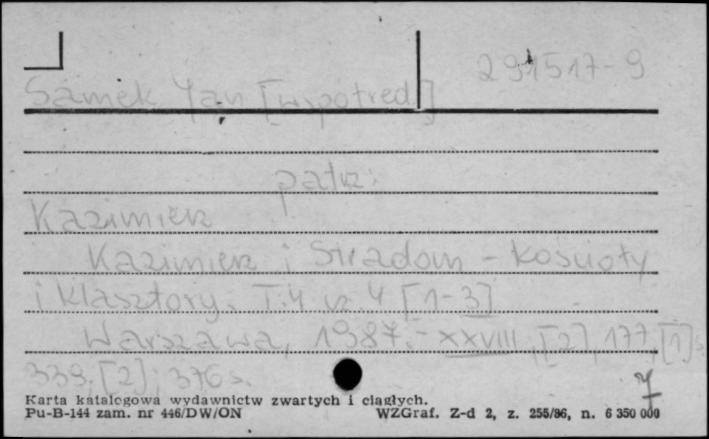 291517-9
Samek Jan [współred.]
patrz:
Kazimierz
Kazimierz i Stradom - kościoły
i klasztory. T. 4 cz. 4 [1-3]
Warszawa, 1987. - XXVIII, [2], 177, [1] s.
339, [2]; 376 s.
Karta katalogowa wydawnictw zwartych i ciągłych.
Pu-B-144 zam. nr 446/DW/ON WZGraf. Z-d 2, z. 255/86, n. 6 350 000